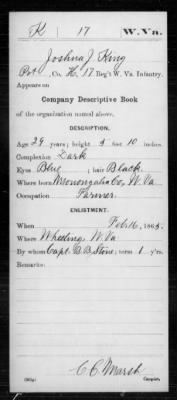 K 17 W.Va.
Joshua J. King
Pvt., Co. K, 17 Reg't W. Va. Infantry.
Appears on
Company Descriptive Book
of the organization named above.
DESCRIPTION.
Age 29 years; height 5 feet 10 inches.
Complexion Dark
Eyes Blue; hair Black.
Where born Monongalia Co, W. Va
Occupation Farmer.
ENLISTMENT.
When Feb 16, 1865.
Where Wheeling, W. Va
By whom Capt. B. B. Stone; term 1 y'rs.
Remarks:
C C Marsh
Copyist.